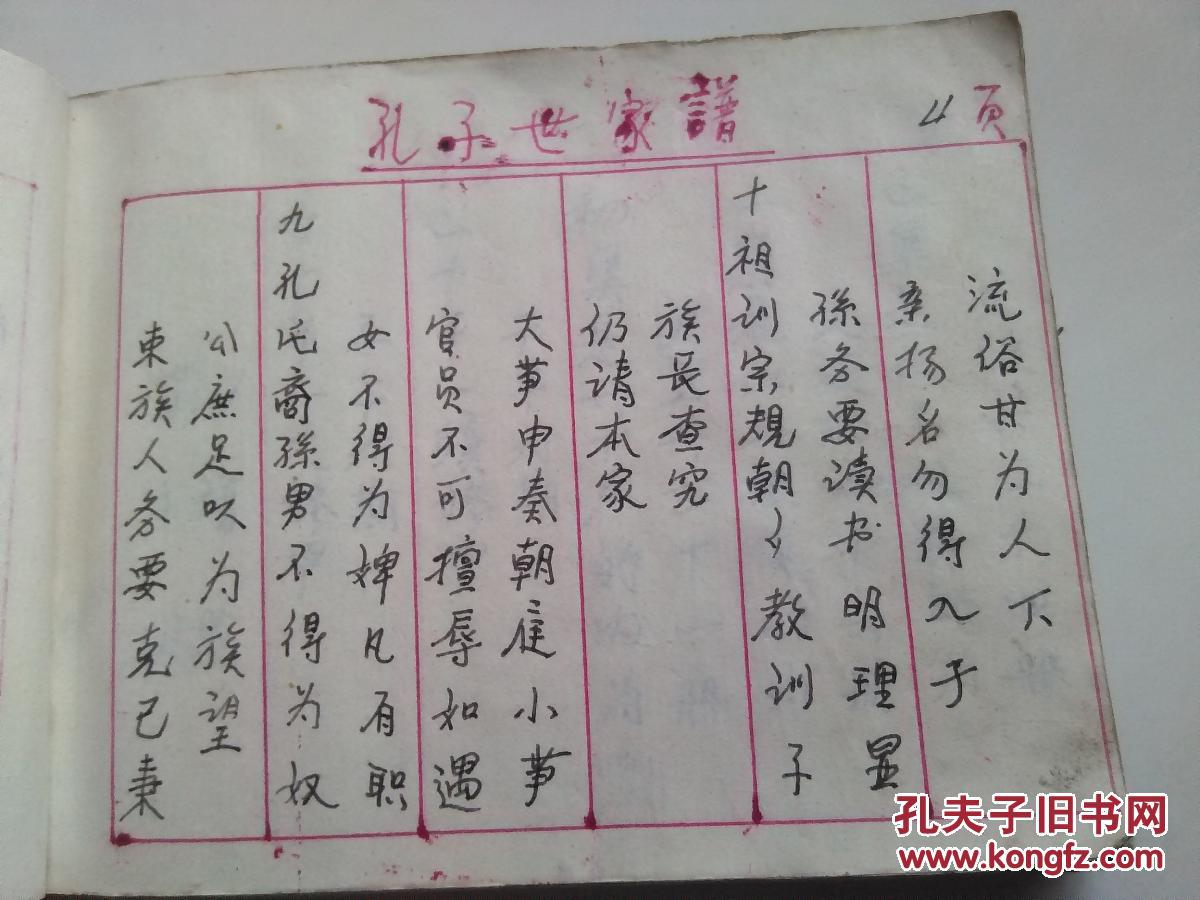 孔子世家譜
4页
東族人务要克己秉
公庶足以为族望
九孔氏裔孫男不得为奴
女不得为婢凡有职
官员不可擅辱如遇
大事申奏朝庭小事
仍请本家
族長查究
十祖训宗規朝夕教训子
孫务要读书明理显
亲扬名勿得入于
流俗甘为人下
孔夫子旧书网
www.kongfz.com